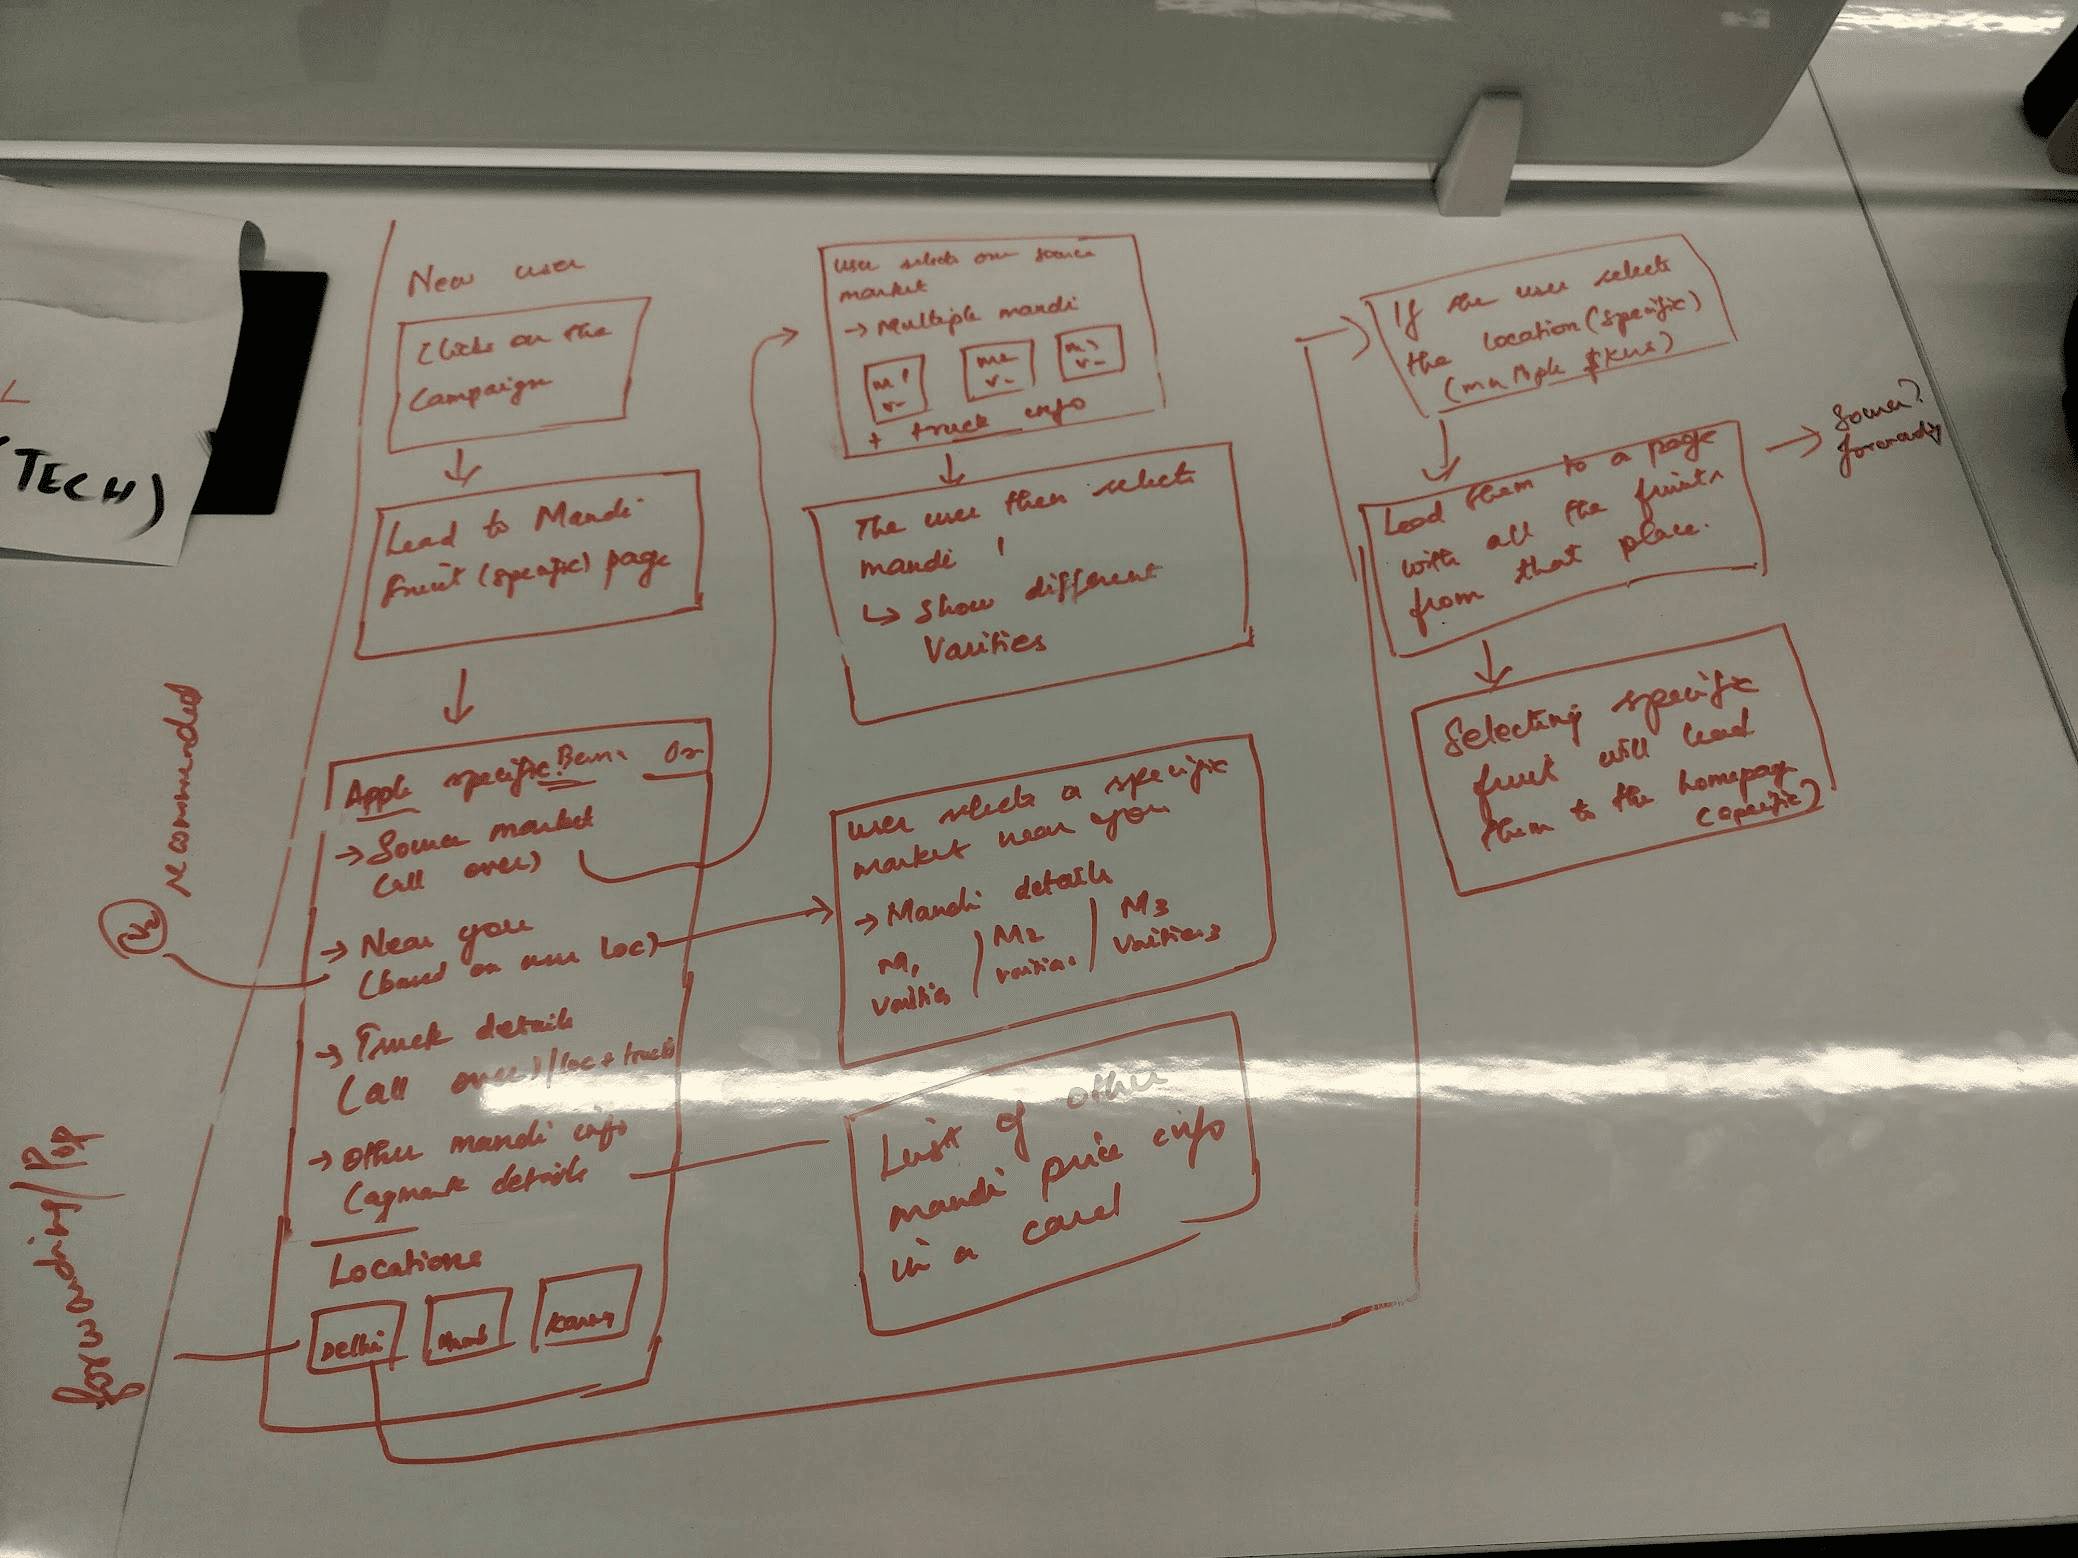 TECH)
New user
Clicks on the
Campaign
Lead to Mandi
fruit (specific) page
Apple specific
→ Source market
(all over)
→ Near you
(based on user loc)
→ Truck details
(all over)/loc + trucks
→ other mandi info
(agmark details
Locations
Delhi
recommended
forwarding/
user selects one source
market
→ Multiple mandi
m1
v-
m2
v-
m3
v-
+ truck info
The user then selects
mandi 1
↳ Show different
Varities
user selects a specific
market near you
→ Mandi details
M1
varities
M2
M3
varities
List of other
mandi price info
in a card
If the user selects
the location (specific)
(multiple SKUs)
Lead them to a page
with all the fruits
from that place.
Selecting specific
fruit will lead
them to the homepage
(specific)